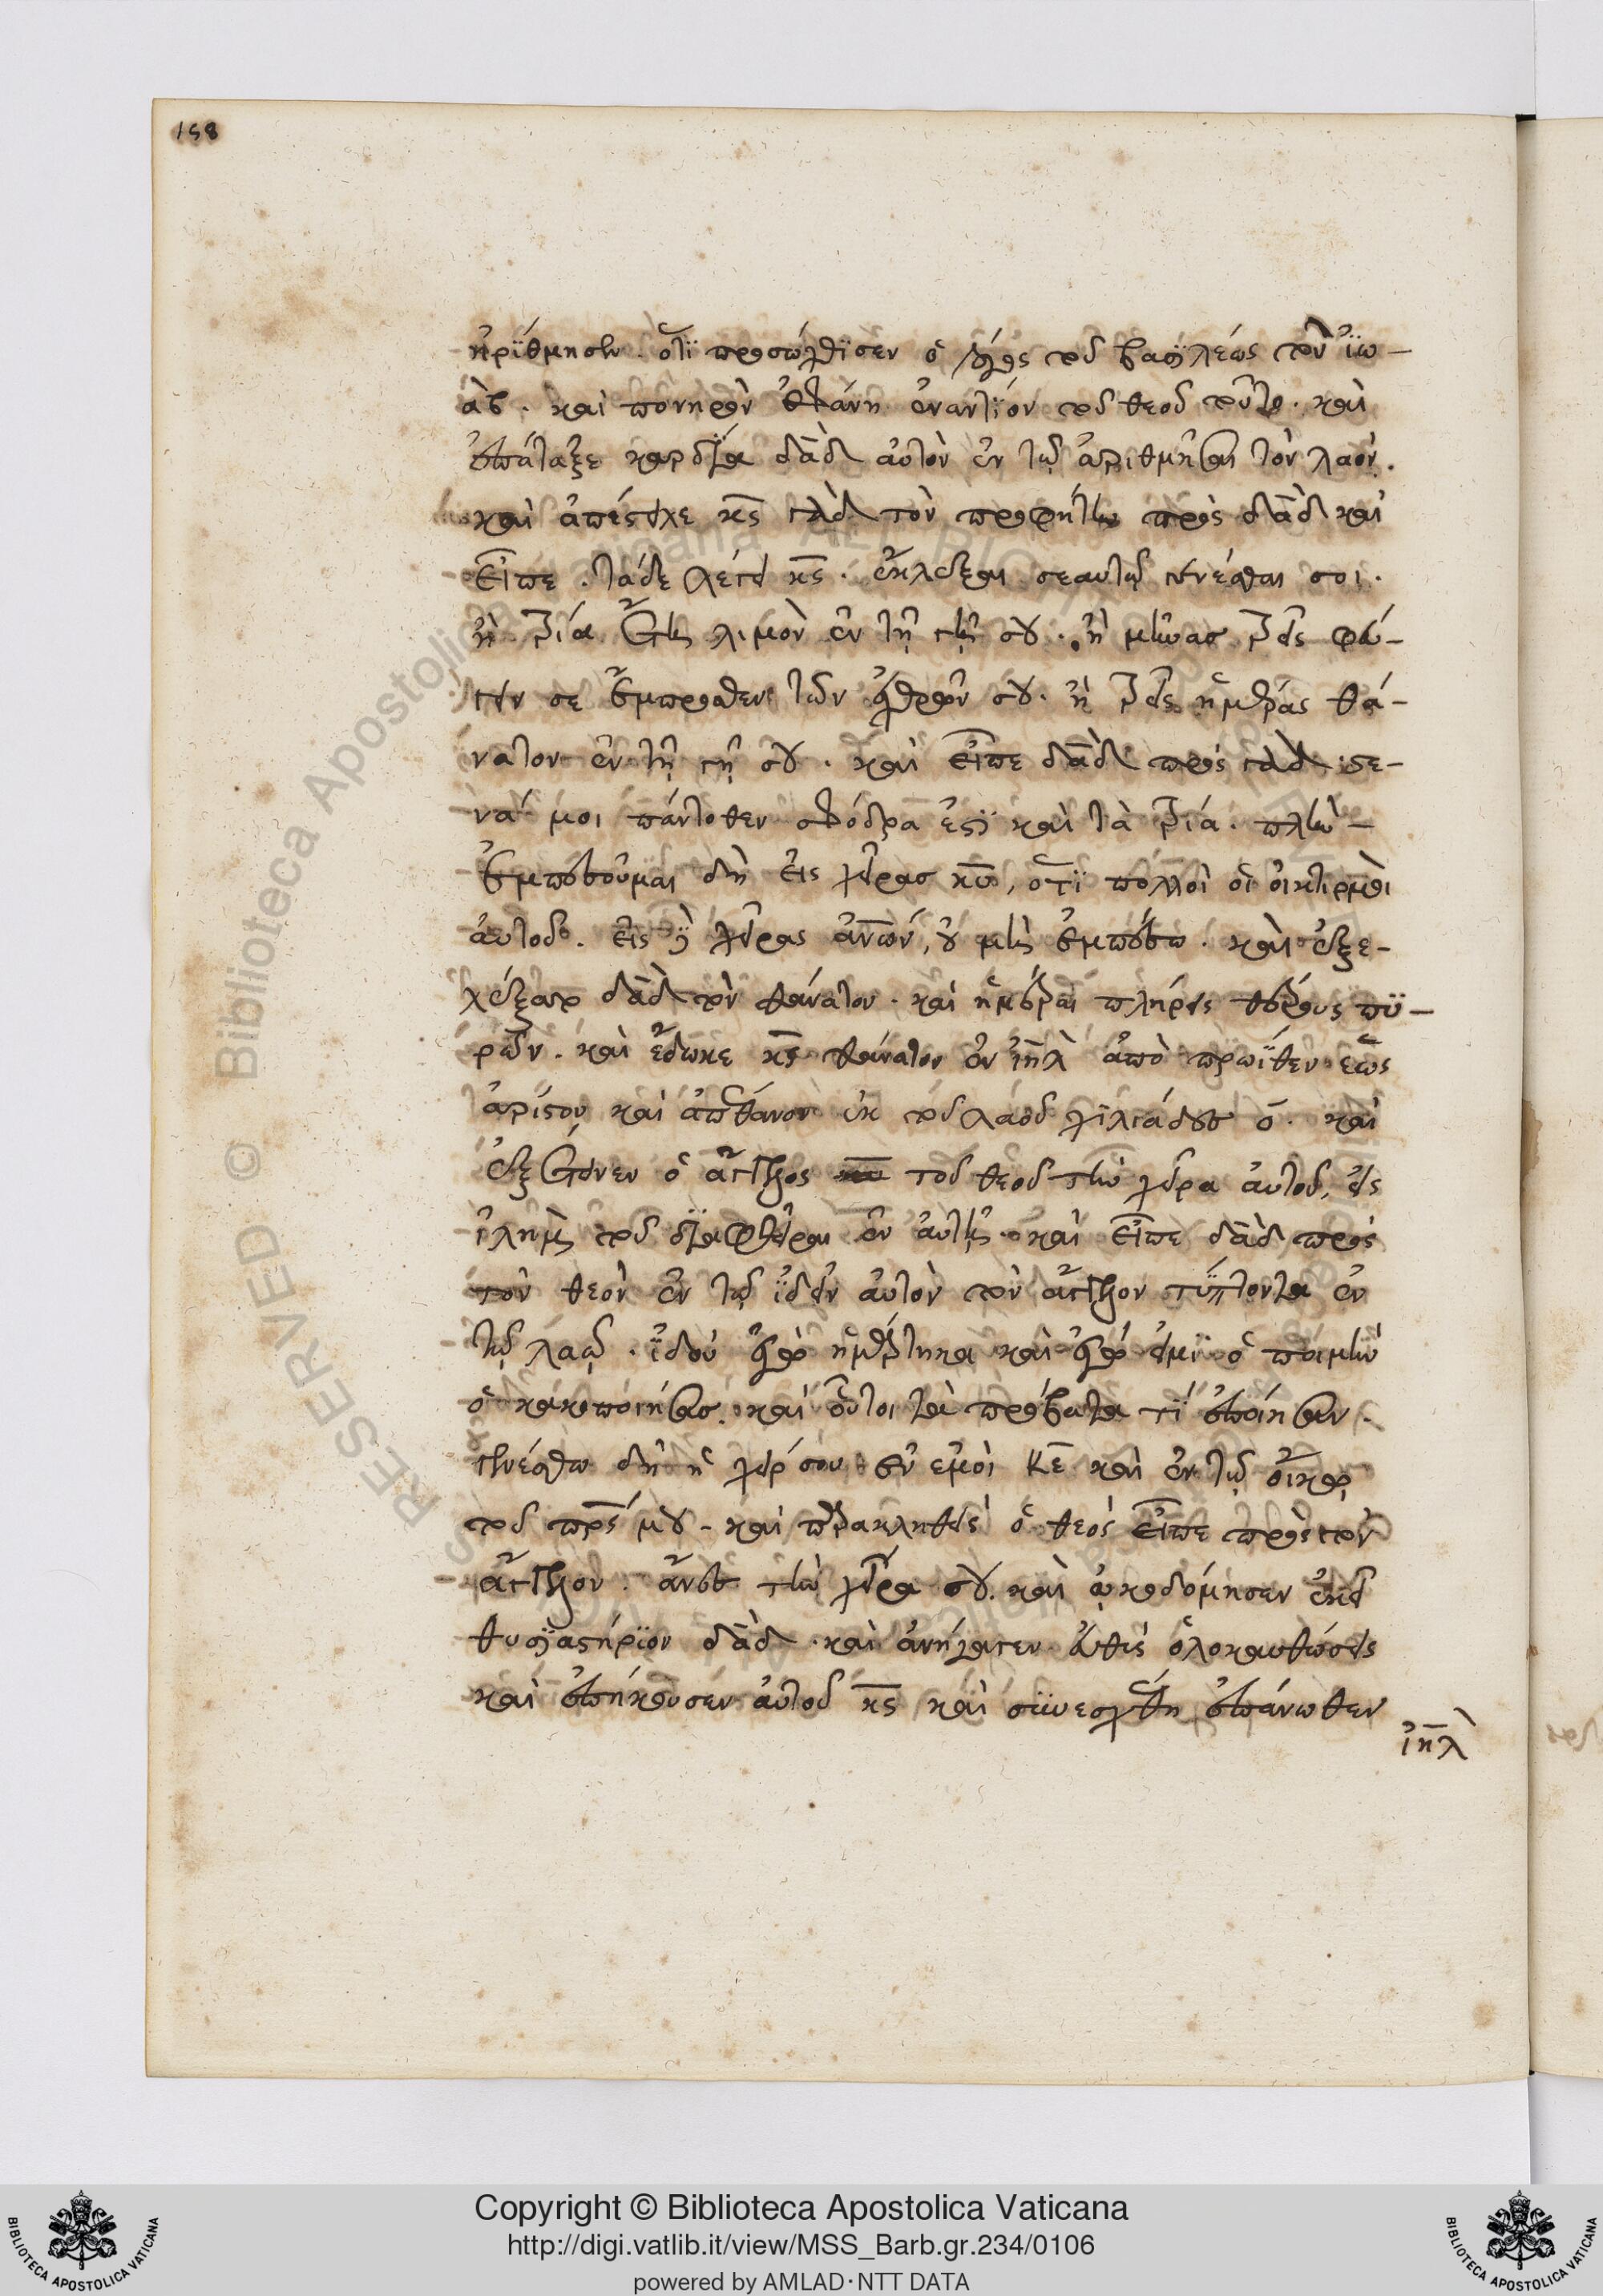 158
ἠρΐθμησεν. ὅτϊ προσώχθϊσεν ὁ λόγος τοῦ βασϊλέως τὸν ἰϊω-
ὰβ. καὶ πονηρὸν ἐφάνη ἐναντίον τοῦ θεοῦ τοῦτο. καὶ
ἐπάταξε καρδΐα δᾱδ αὐτὸν ἐν τῷ ἀριθμῆσαι τὸν λαόν.
καὶ ἀπέστειλε κ̅ς̅ γὰδ τὸν προφήτην πρὸς δᾱδ καὶ
εἶπε. τάδε λέγει κ̅ς̅. ἔκλεξαι σεαυτῷ γενέσθαι σοι.
ἢ τρία ἔτη λιμὸν ἐν τῇ γῇ σου. ἢ μῆνασ τρεῖς φεύ-
γειν σε ἔμπροσθεν τῶν ἐχθρῶν σου. ἢ τρεῖς ἡμέρας θά-
νατον ἐν τῇ γῇ σου. καὶ εἶπε δᾱδ πρὸς γὰδ στε-
νά μοι πάντοθεν σφόδρα ἐστϊ καὶ τὰ τρία. πλὴν
ἐμπεσοῦμαι δὴ εἰς χεῖρασ κ̅υ̅, ὅτϊ πολλοὶ οἱ οἰκτιρμοὶ
αὐτοῦ. εἰς δὲ χεῖρας ἀν̅ων, οὐ μὴ ἐμπέσω. καὶ ἐξε-
λέξατο δᾱδ τὸν θάνατον. καὶ ἡμέραι πλήρεις θέρους πϋ-
ρῶν. καὶ ἔδωκε κ̅ς̅ θάνατον ἐν ἰη̅λ ἀπὸ πρωΐθεν ἕως
ἀρίστου καὶ ἀπέθανον ἐκ τοῦ λαοῦ χϊλιάδες ο̅. καὶ
ἐξέτεινεν ὁ ἄγγελος κ̅υ̅ τοῦ θεοῦ τὴν χεῖρα αὐτοῦ, εἰς
ἰλημ̅ τοῦ δϊαφθεῖραι ἐν αὐτῇ. καὶ εἶπε δᾱδ πρὸς
τὸν θεὸν ἐν τῷ ἰδεῖν αὐτὸν τὸν ἄγγελον τύπτοντα ἐν
τῷ λαῷ. ἰδοὺ ἐγὼ ἡμάρτηκα καὶ ἐγώ εἰμϊ ὁ ποιμὴν
ὁ κακοποιήσασ. καὶ οὗτοι τὰ πρόβατα τί ἐποίησαν.
γενέσθω δὴ ἡ χείρ σου ἐν ἐμοὶ κ̅ε̅ καὶ ἐν τῷ οἴκῳ
τοῦ πρ̅ς μου - καὶ παρακληθεὶς ὁ θεὸς εἶπε πρὸς τὸν
ἄγγελον. ἄνες τὴν χεῖρα σου. καὶ ᾠκοδόμησεν ἐκεῖ
θυσϊαστήριον δᾱδ. καὶ ἀνήγαγεν αὖθις ὁλοκαυτώσεις
καὶ ἐπήκουσεν αὐτοῦ κ̅ς̅ καὶ συνεσχέθη ἐπάνωθεν
ἰη̅λ
Copyright © Biblioteca Apostolica Vaticana
http://digi.vatlib.it/view/MSS_Barb.gr.234/0106
powered by AMLAD·NTT DATA